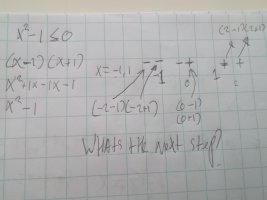 x²-1≤0
(x-1)(x+1)
x²+1x-1x-1
x²-1
x=-1,1
- -
-1
- +
0
1
+ +
2
(2-1)(2+1)
(-2-1)(-2+1)
(0-1)
(0+1)
Whats the next step?